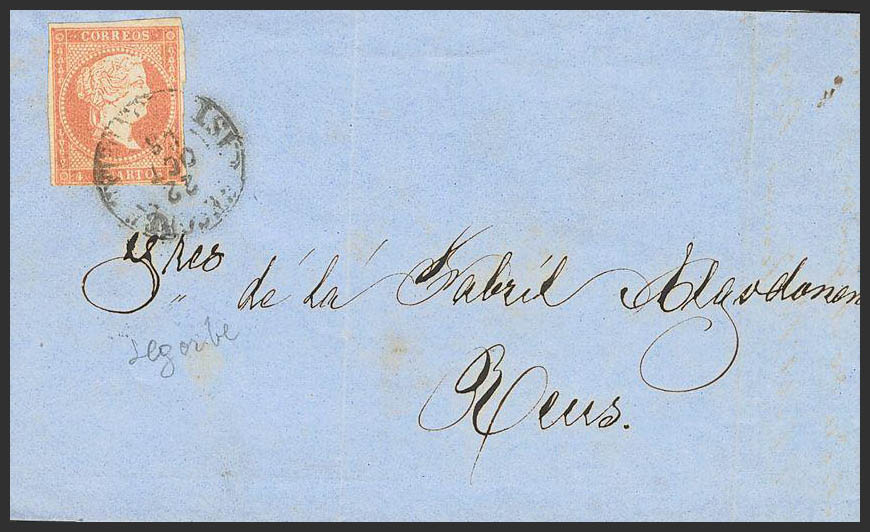 CORREOS
4 CUARTOS
22
OCT
Sres de la Fabril Algodonen
Segorbe
Reus.